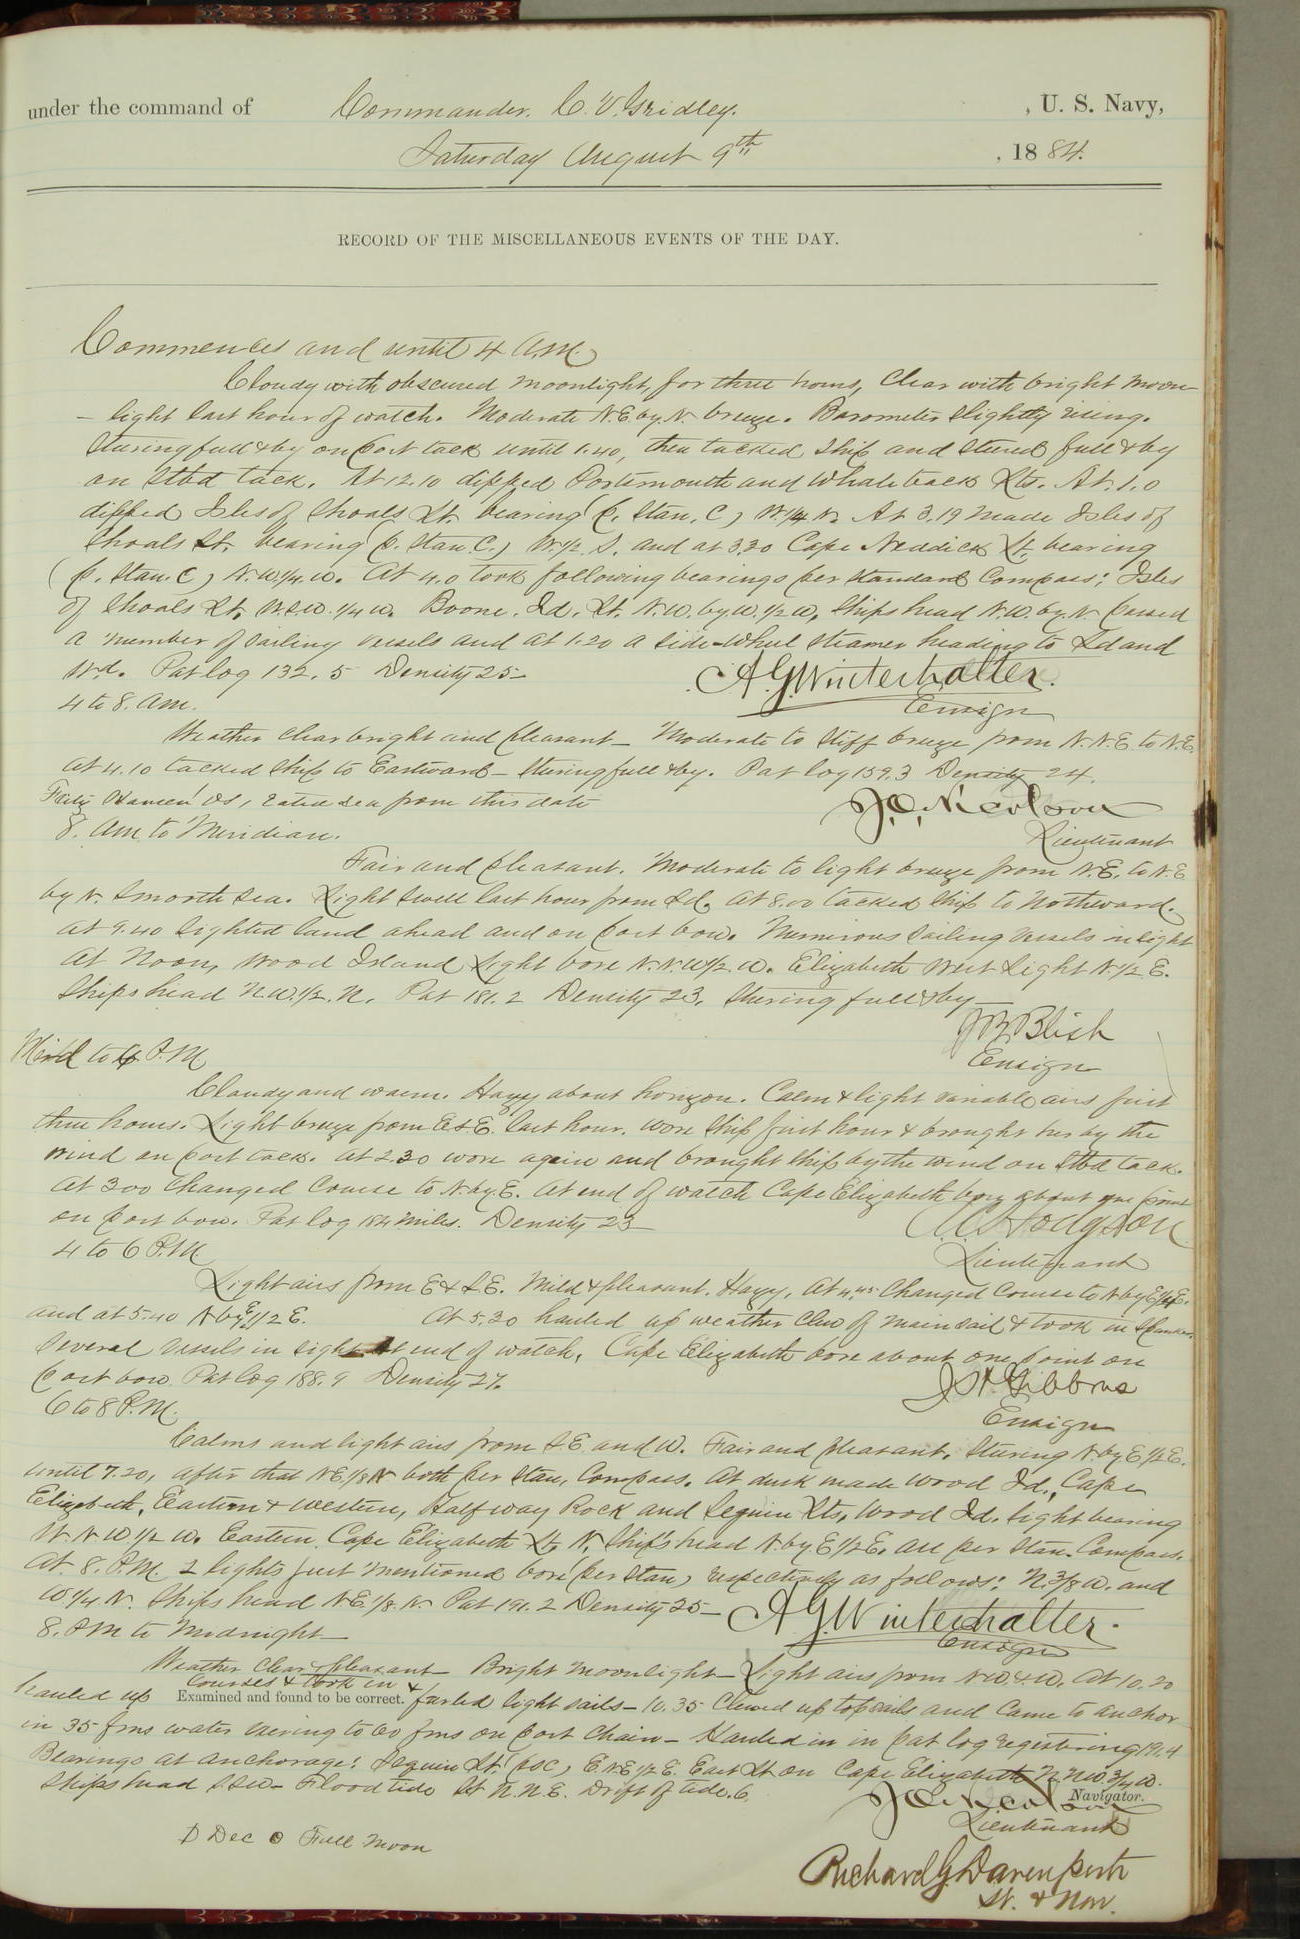 under the command of Commander. C. V. Gridley. , U. S. Navy,
Saturday August 9th , 1884.
RECORD OF THE MISCELLANEOUS EVENTS OF THE DAY.
Commences and until 4 A.M.
Cloudy with obscured moonlight, for three hours, Clear with bright moon-
-light last hour of watch. Moderate N.E. by N. breeze. Barometer slightly rising.
Steering full & by on Port tack until 1.40, then tacked ship and steered full & by
on Stbd tack. At 12.10 dipped Portsmouth and Whaleback Lts. At 1.0
dipped Isles of Shoals Lt. bearing (p. Stan. C) W. 1/4 N. At 3.19 made Isles of
Shoals Lt. bearing (p. Stan. C.) W. 1/2 S. and at 3.30 Cape Neddick Lt. bearing
(p. Stan. C) N.W. 1/4 W. At 4.0 took following bearings per Standard Compass: Isles
of Shoals Lt. W.S.W. 1/4 W. Boone. Id. Lt. N.W. by W. 1/2 W, Ships head N.W. by N. passed
a number of sailing vessels and at 1.20 a side-wheel steamer heading to Sd and
Wd. Pat log 132.5 Density 25
A. G. Winterhalter.
Ensign
4 to 8. AM.
Weather clear bright and pleasant - Moderate to stiff breeze from N.N.E. to N.E.
At 4.10 tacked ship to Eastward - Steering full & by. Pat log 159.3 Density 24.
Fritz Hansen OS, rated sea from this date
J. O. Nicolson
Lieutenant
8. AM to Meridian.
Fair and pleasant. Moderate to light breeze from N.E. to N.E.
by N. Smooth sea. Light swell last hour from Sd. At 8.00 tacked ship to Northward.
At 9.40 sighted land ahead and on port bow. Numerous sailing vessels in sight
At Noon, Wood Island Light bore N.N.W 1/2 W. Elizabeth West Light N. 1/2 E.
Ships head N.W. 1/2 N. Pat 181.2 Density 23. Steering full & by
J B Blish
Ensign
Merid to 4 P.M
Cloudy and warm. Hazy about horizon. Calm & light variable airs first
three hours. Light breeze from E & S.E. last hour. Wore ship first hour & brought her by the
wind on port tack. At 2.30 wore again and brought ship by the wind on Stbd tack.
At 3.00 Changed Course to N. by E. At end of watch Cape Elizabeth bore about one point
on port bow. Pat log 184 miles. Density 23
A. C. Hodgson
Lieutenant
4 to 6 P.M.
Light airs from E & S.E. Mild & pleasant. Hazy. At 4.45 Changed Course to N by E 1/4 E.
and at 5.40 N by E 1/2 E. At 5.30 hauled up weather Clew of mainsail & took in Spanker.
Several vessels in sight At end of watch, Cape Elizabeth bore about one point on
port bow. Pat log 188.9 Density 27.
J. H. Gibbons
Ensign
6 to 8 P.M.
Calms and light airs from S.E. and W. Fair and pleasant. Steering N by E 1/2 E.
until 7.20, after that N.E. 1/8 N both per Stan. Compass. At dusk made Wood Id., Cape
Elizabeth, Eastern & Western, Halfway Rock and Seguin Lts, Wood Id. light bearing
W. N. W 1/2 W. Eastern Cape Elizabeth Lt. N. Ship's head N. by E 1/2 E. all per Stan. Compass.
At 8. P.M. 2 lights just mentioned bore (per Stan) respectively as follows: N. 3/8 W. and
W 1/4 N. Ships head N.E 1/8 N. Pat 191.2 Density 25
A. G. Winterhalter.
Ensign
8. PM to Midnight
Weather Clear & pleasant - Bright Moonlight - Light airs from NW & W. At 10.20
hauled up courses & took in & furled light sails - 10.35 Clewed up topsails and came to anchor
Examined and found to be correct.
in 35 fms water veering to 60 fms on port chain - Hauled in in pat log registering 191.4
Bearings at anchorage: Seguin Lt. (psc) E. N E 1/2 E. East Lt on Cape Elizabeth N. NW. 3/4 W.
Ships head SSW - Flood tide Set N. N. E. Drift of tide .6
J. O. Nicolson
Navigator.
Lieutenant
D Dec Full Moon
Richard G. Davenport
Lt. & Nav.